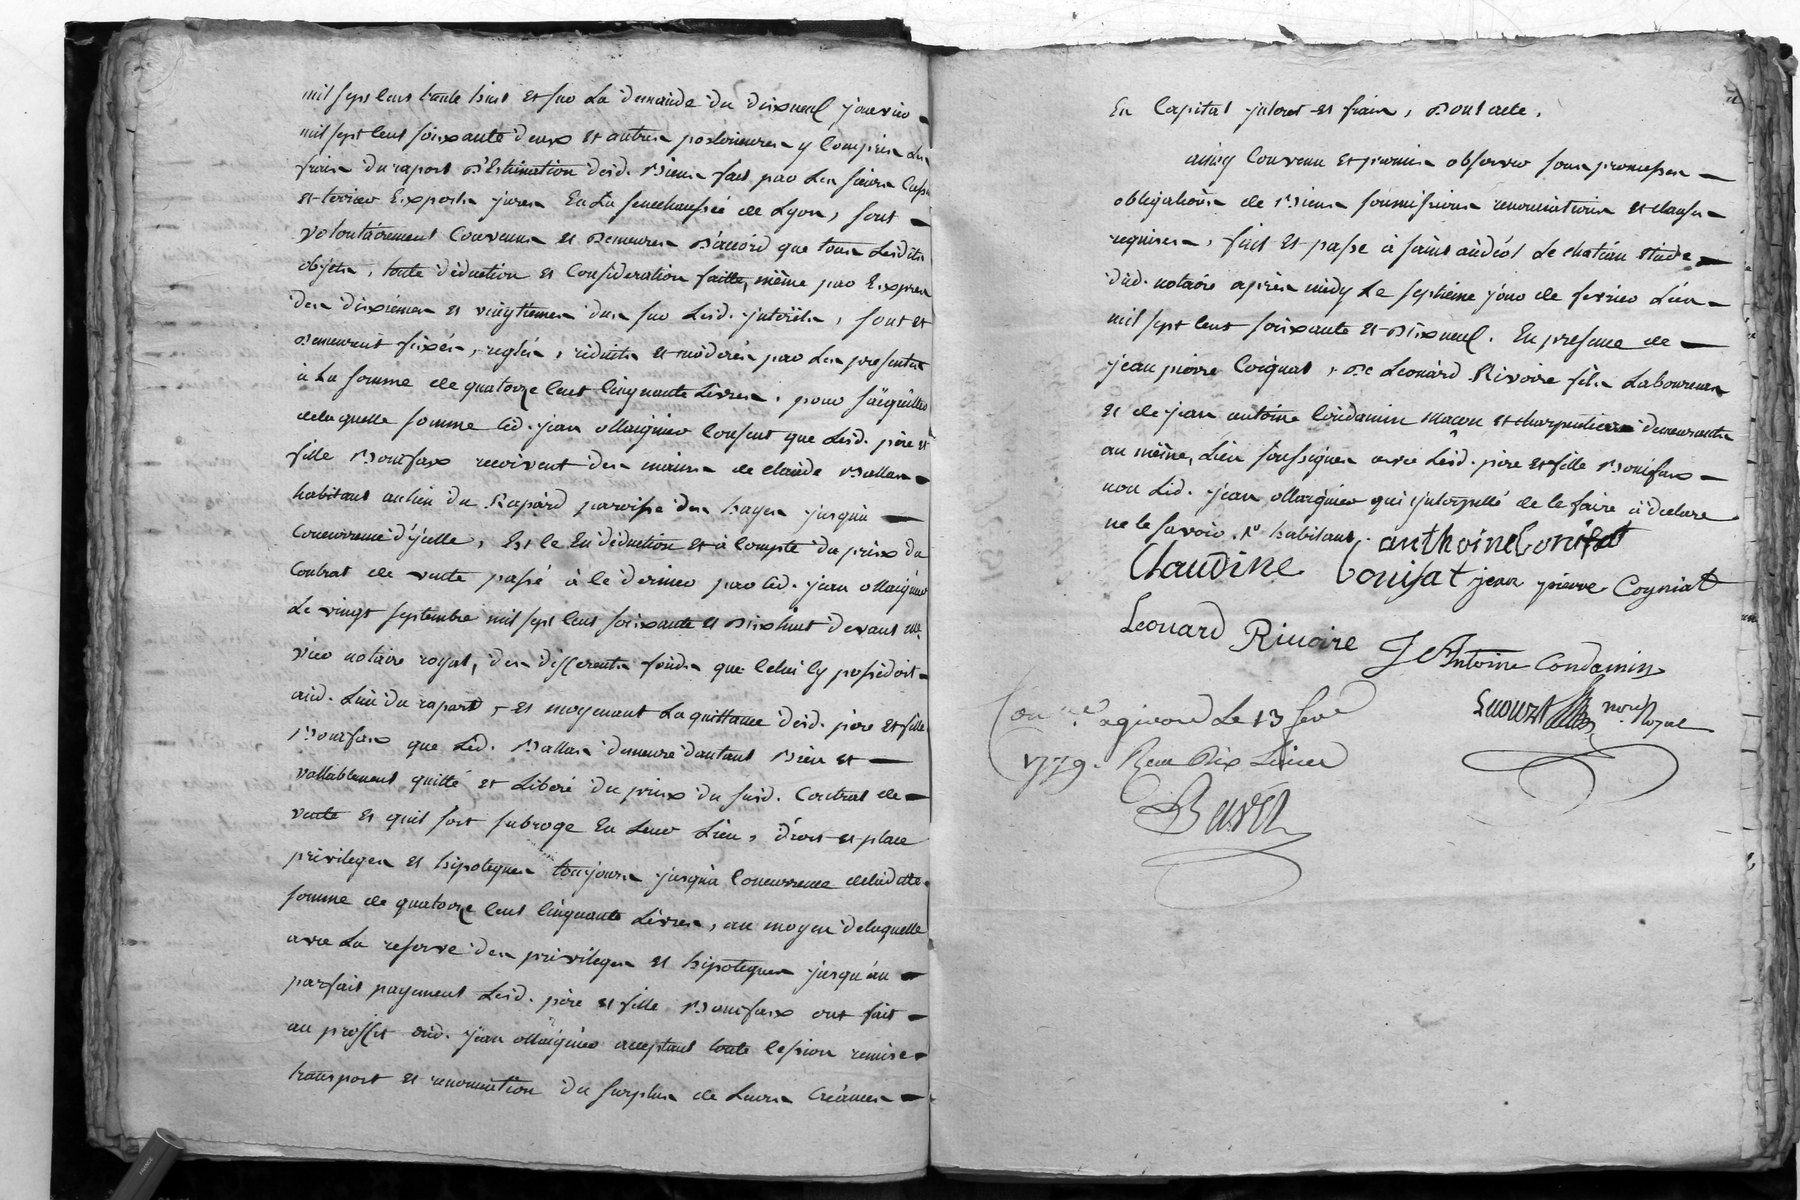 mil sept cent trente huit et sur la demande du dixneuf janvier
mil sept cent soixante deux et autres posterieures y compris les
frais du raport d'Estimation desd. Biens fait par les sieurs
et terrier Experts jures En la senechaussée de Lyon, sont
volontairement Convenus et Demeures D'accord que tous lesdits
objets, toute déduction et Consideration faitte, même par Expres
des dixiémes et vingtiemes dus sur lesd. jnterêts, sont et
Demeurent fixés, reglés, réduits et modérés par les presentes
à la somme de quatorze cent cinquante Livres, pour
delaquelle somme led. jean Maignier consent que lesd. père et
fille Bonifax reçoivent des mains de claude Ballas
habitant aulieu du Rapard paroisse des hayes jusquà
Concurrence d'jcelle, Et ce En déduction et à compte du prix du
Contrat de vente passé à ce dernier par led. jean Maignier
Le vingt septembre mil sept cent soixante et Dixhuit devant me.
notaire royal, des differents fonds que celui cy possedoit
aud. Lieu du rapard, et moyenant la quittance desd. père et fille
Bonifax que led. Ballas demeure dautant Bien et
vallablement quitté et Libéré du prix du susd. Contrat de
vente et quil soit subrogé En leur Lieu, droit et place
privileges et hipoteques toujours jusquà concurrence deladitte
somme de quatorze cent cinquante Livres, au moyen delaquelle
avec la reserve des privileges et hipoteques jusqu'au
parfait payement lesd. père et fille Bonifax ont fait
au proffit dud. jean Maignier acceptant toute cession remise
transport et renonciation du surplus de leurs Créances
En Capital jnteret et frais, Dont acte.
ainsy Convenu et promis observer sous promesses
obligations de Biens soumissions renonciations et clauses
requises, fait et passé à saint andéol le chatéau Etude
dud. notaire après midy Le septiéme jour de fevrier L'an
mil sept cent soixante et Dixneuf. En presence de
jean pierre Coignat, De Leonard Rivoire fils Laboureurs
et de jean antoine Condamin Macon et charpentier demeurants
au même Lieu soussignes avec lesd. père et fille Bonifax
non led. jean Maignier qui jnterpellé de le faire à déclaré
ne le savoir. habitant. anthoine bonifat
Claudine bonifat jean pierre Cogniat
Leonard Riuoire J Antoine Condamin
nore. Royal
Con.lé agivord Le 13 fevr
1779. Reçu Dix Livres